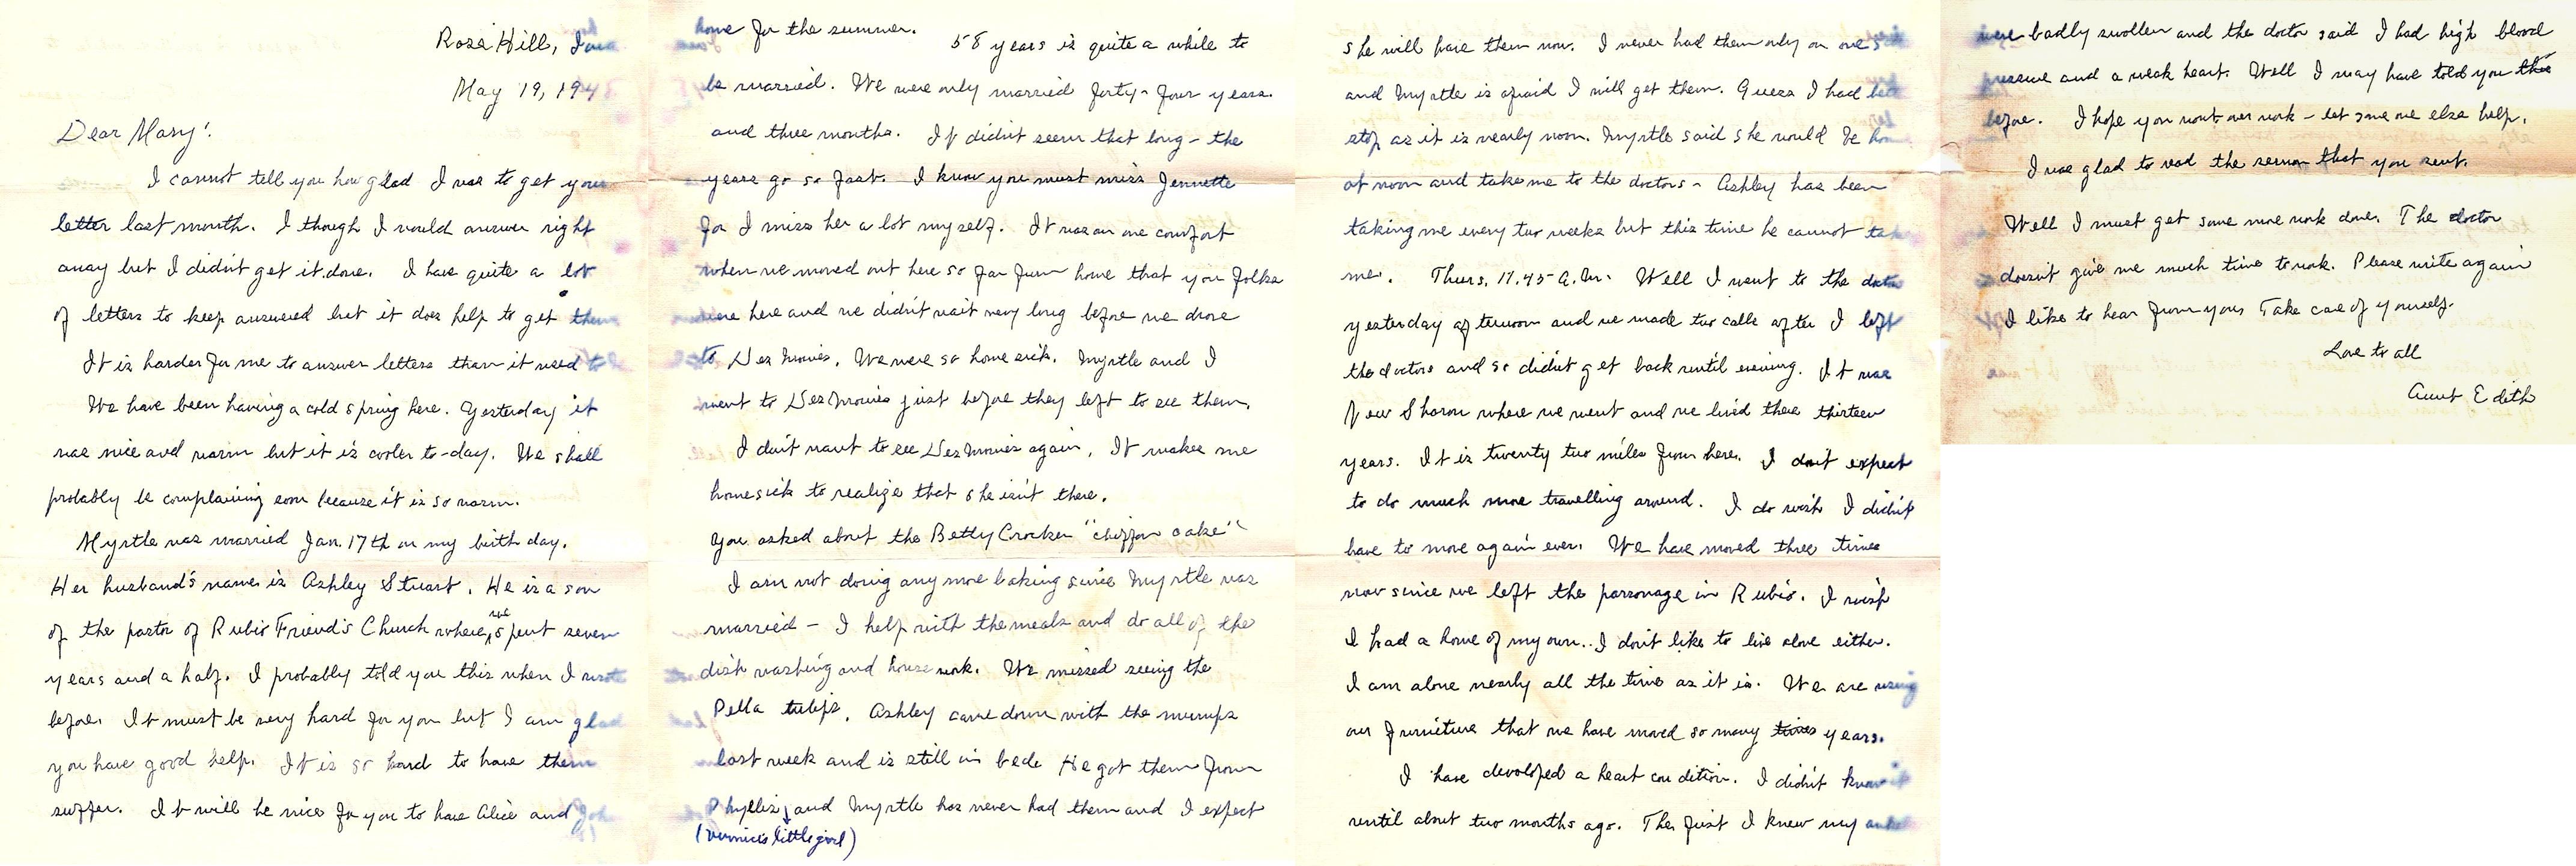 Rose Hill, Iowa
May 19, 194
Dear Mary!
I cannot tell you how glad I was to get your
letter last month. I though I would answer right
away but I didn't get it done. I have quite a lot
of letters to keep answered but it does help to get them
It is harder for me to answer letters than it used to
We have been having a cold spring here. Yesterday it
was nice and warm but it is cooler to-day. We shall
probably be complaining soon because it is so warm.
Myrtle was married Jan. 17th on my birth day.
Her husband's name is Ashley Stuart. He is a son
of the pastor of Rubio Friend's Church where we spent seven
years and a half. I probably told you this when I wrote
before. It must be very hard for you but I am glad
you have good help. It is so hard to have them
suffer. It will be nice for you to have Alice and John
home for the summer. 58 years is quite a while to
be married. We were only married forty-four years.
and three months. It didn't seem that long - the
years go so fast. I know you must miss Jennette
for I miss her a lot myself. It was our one comfort
when we moved out here so far from home that you folks
were here and we didn't wait very long before we drove
to Des Moines. We were so home sick. Myrtle and I
went to Des Moines just before they left to see them.
I don't want to see Des Moines again. It makes me
homesick to realize that she isn't there.
You asked about the Betty Crocker "chiffon cake"
I am not doing any more baking since Myrtle was
married - I help with the meals and do all of the
dish washing and house work. We missed seeing the
Pella tulips. Ashley came down with the mumps
last week and is still in bed. He got them from
Phyllis, and Myrtle has never had them and I expect
(Vernice's little girl)
she will have them now. I never had them only on one side
and Myrtle is afraid I will get them. Guess I had better
stop as it is nearly noon. Myrtle said she would be home
at noon and take me to the doctors - Ashley has been
taking me every two weeks but this time he cannot take
me. Thurs. 11.45 A.M. Well I went to the doctor
yesterday afternoon and we made two calls after I left
the doctors and so didn't get back until evening. It was
New Sharon where we went and we lived there thirteen
years. It is twenty two miles from here. I don't expect
to do much more travelling around. I do wish I didn't
have to move again ever. We have moved three times
now since we left the parsonage in Rubio. I wish
I had a home of my own. I don't like to live alone either.
I am alone nearly all the time as it is. We are using
our furniture that we have moved so many times years.
I have developed a heart condition. I didn't know it
until about two months ago. The first I knew my ankles
were badly swollen and the doctor said I had high blood
pressure and a weak heart. Well I may have told you this
before. I hope you wont over work - let some one else help.
I was glad to read the sermon that you sent.
Well I must get some more work done. The doctor
doesn't give me much time to work. Please write again
I like to hear from you. Take care of yourself.
Love to all
Aunt Edith